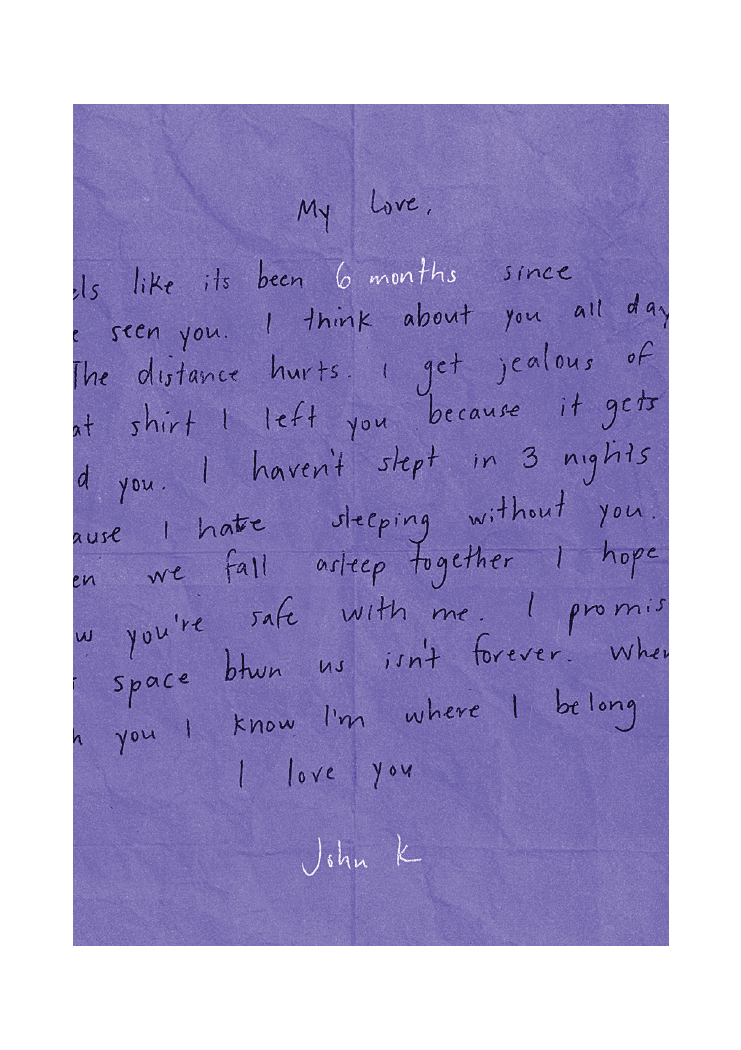 My Love,
els like its been 6 months since
e seen you. I think about you all day
The distance hurts. I get jealous of
at shirt I left you because it gets
d you. I haven't slept in 3 nights
ause I hate sleeping without you.
en we fall asleep together I hope
w you're safe with me. I promis
space btwn us isn't forever. When
h you I know I'm where I belong
I love you
John K